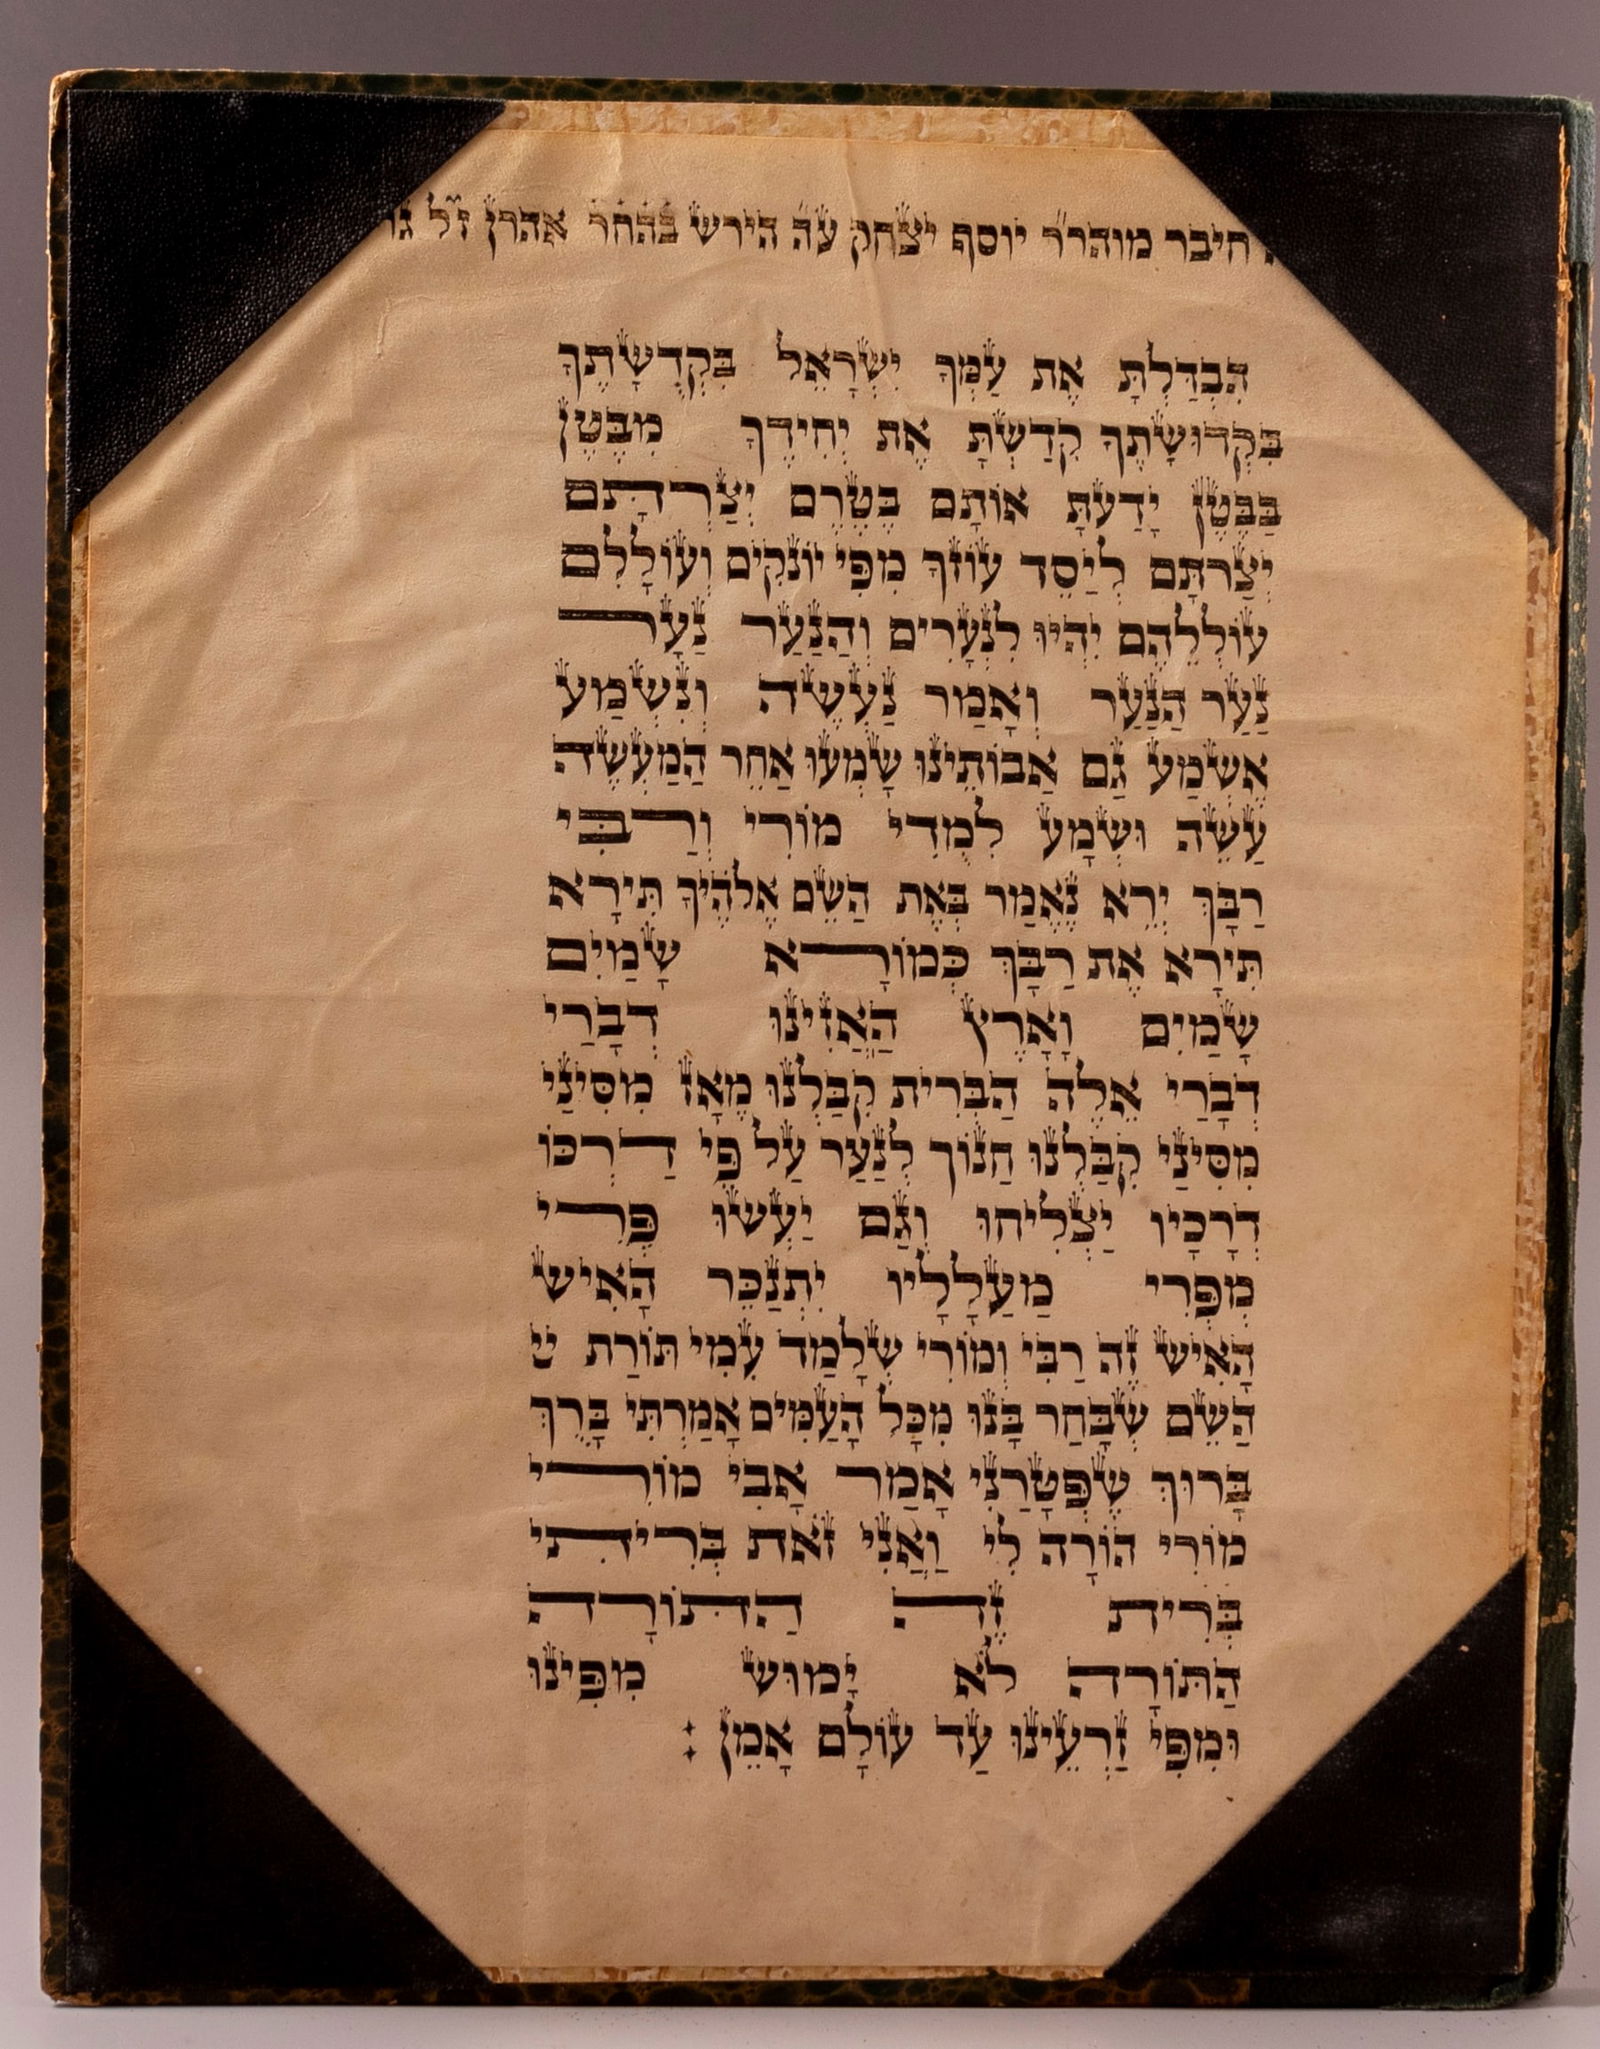 חיבר מוהר״ר יוסף יצחק ע״ה הירש בהח״ר אהרן ז״ל
הִבְדַּלְתָּ אֶת עַמְּךָ יִשְׂרָאֵל בִּקְדֻשָּׁתֶךָ
בִּקְדוּשָׁתְךָ קִדַּשְׁתָּ אֶת יְחִידֶךָ מִבֶּטֶן
בַּבֶּטֶן יָדַעְתָּ אוֹתָם בְּטֶרֶם יְצַרְתָּם
יְצַרְתָּם לְיַסֵּד עוֹזְךָ מִפִּי יוֹנְקִים וְעוֹלָלִם
עוֹלְלֵהֶם יִהְיוּ לִנְעָרִים וְהַנַּעַר נָעַר
נַעַר הַנַּעַר וְאָמַר נַעֲשֶׂה וְנִשְׁמַע
אֶשְׁמַע גַּם אֲבוֹתֵינוּ שָׁמְעוּ אַחַר הַמַּעֲשֶׂה
עֲשֵׂה וּשְׁמָע לִמֻּדִי מוֹרִי וְרַבִּי
רַבָּךְ יְרֵא נֶאֱמַר בְּאֶת הַשֵּׁם אֱלֹהֶיךָ תִּירָא
תִּירָא אֶת רַבָּךְ כְּמוֹרָא שָׁמַיִם
שָׁמַיִם וָאָרֶץ הַאֲזִינוּ דְבָרַי
דְבָרַי אֵלֶּה הַבְּרִית קִבַּלְנוּ מֵאָז מִסִּינַי
מִסִּינַי קִבַּלְנוּ חֲנוֹךְ לְנַעַר עַל פִּי דַרְכּוֹ
דְרָכָיו יַצְלִיחוּ וְגַם יַעֲשׂוּ פְּרִי
מִפְּרִי מַעֲלָלָיו יִתְנַכֵּר הָאִישׁ
הָאִישׁ זֶה רַבִּי וּמוֹרִי שֶׁלָמַד עִמִּי תּוֹרַת ש
הַשֵּׁם שֶׁבָּחַר בָּנוּ מִכָּל הָעַמִּים אָמַרְתִּי בָּרֵךְ
בָּרוּךְ שֶׁפְּטָרַנִי אָמַר אָבִי מוֹרִי
מוֹרִי הוֹרָה לִי וַאֲנִי זֹאת בְּרִיתִי
בְּרִית זֶה הַתּוֹרָה
הַתּוֹרָה לֹא יָמוּשׁ מִפִּינוּ
וּמִפִּי זַרְעֵינוּ עַד עוֹלָם אָמֵן :